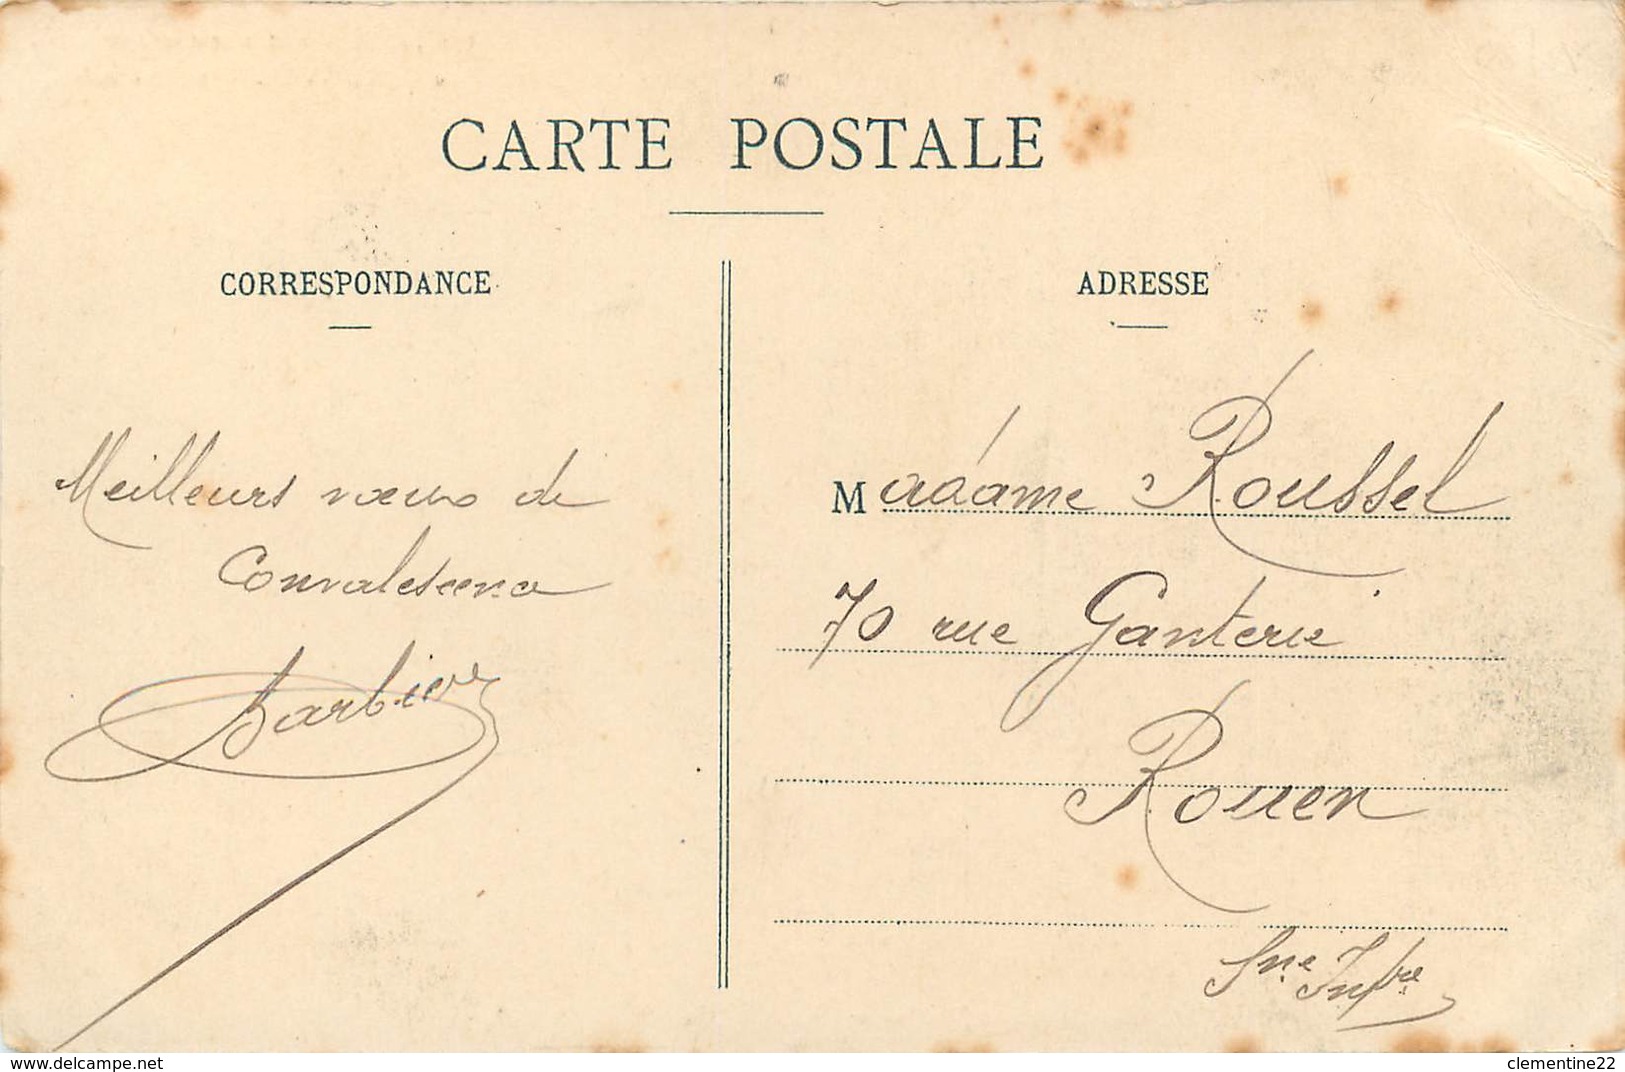 CARTE POSTALE
CORRESPONDANCE
Meilleurs vœux de
Convalescence
Barbier
ADRESSE
Madame Roussel
70 rue Ganterie
Rouen
Sne Infre
www.delcampe.net
clementine22